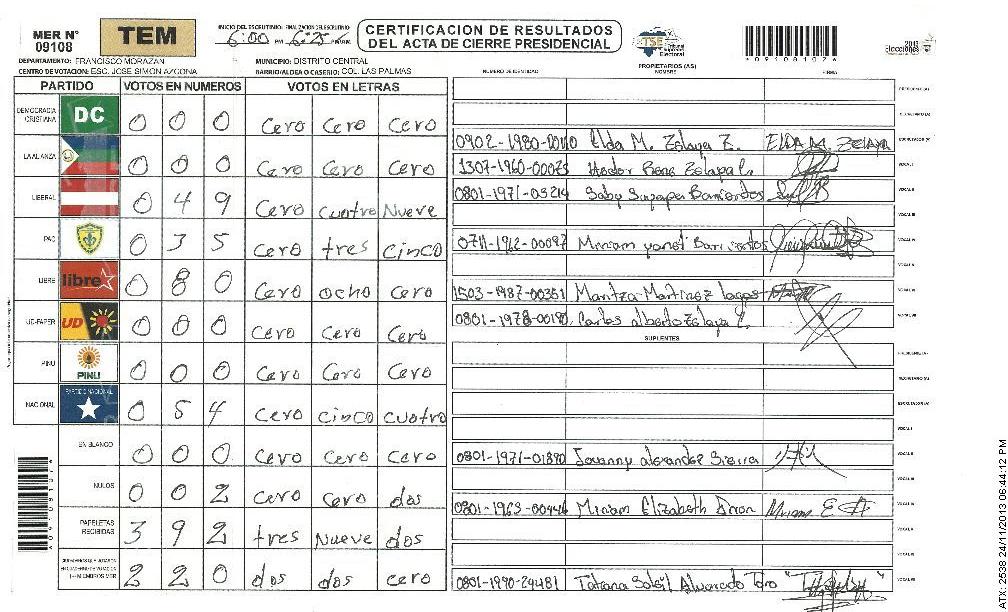 MER N° 09108
TEM
INICIO DEL ESCRUTINIO: 6:00 PM FINALIZACION DEL ESCRUTINIO: 6:25 PM/AM
CERTIFICACION DE RESULTADOS DEL ACTA DE CIERRE PRESIDENCIAL
TSE Tribunal Nacional Electoral
*09108107*
2013 Elecciones
DEPARTAMENTO: FRANCISCO MORAZAN MUNICIPIO: DISTRITO CENTRAL
CENTRO DE VOTACION: ESC. JOSE SIMON AZCONA BARRIO/ALDEA O CASERIO: COL. LAS PALMAS
NUMERO DE IDENTIDAD PROPIETARIOS (AS) NOMBRE FIRMA
PARTIDO VOTOS EN NUMEROS VOTOS EN LETRAS
DEMOCRACIA CRISTIANA DC 0 0 0 Cero Cero Cero
LA ALIANZA 0 0 0 Cero Cero Cero
LIBERAL 0 4 9 Cero cuatro Nueve
PAC 0 3 5 Cero tres Cinco
LIBRE libre 0 8 0 Cero ocho Cero
UD-FAPER UD 0 0 0 Cero Cero Cero
PINU PINU 0 0 0 Cero Cero Cero
NACIONAL PARTIDO NACIONAL 0 5 4 Cero cinco cuatro
EN BLANCO 0 0 0 Cero Cero Cero
NULOS 0 0 2 Cero Cero dos
PAPELETAS RECIBIDAS 3 9 2 tres Nueve dos
2 2 0 dos dos cero
Elda M. Zelaya Z. ELDA M. ZELAYA
1307-1960-00075 Hector Rene Zelaya
0801-1971-03214
Miriam
1503-1987-00351 Maritza Martinez Lagos
Carlos alberto Zelaya
SUPLENTES
0801-1971-01890 Jovanny alexander Sierra
Miriam Elizabeth
0801-1990-24481 Tatiana Alvarado Toro
*09108107*
ATX: 2538 24/11/2013 06:44:12 PM